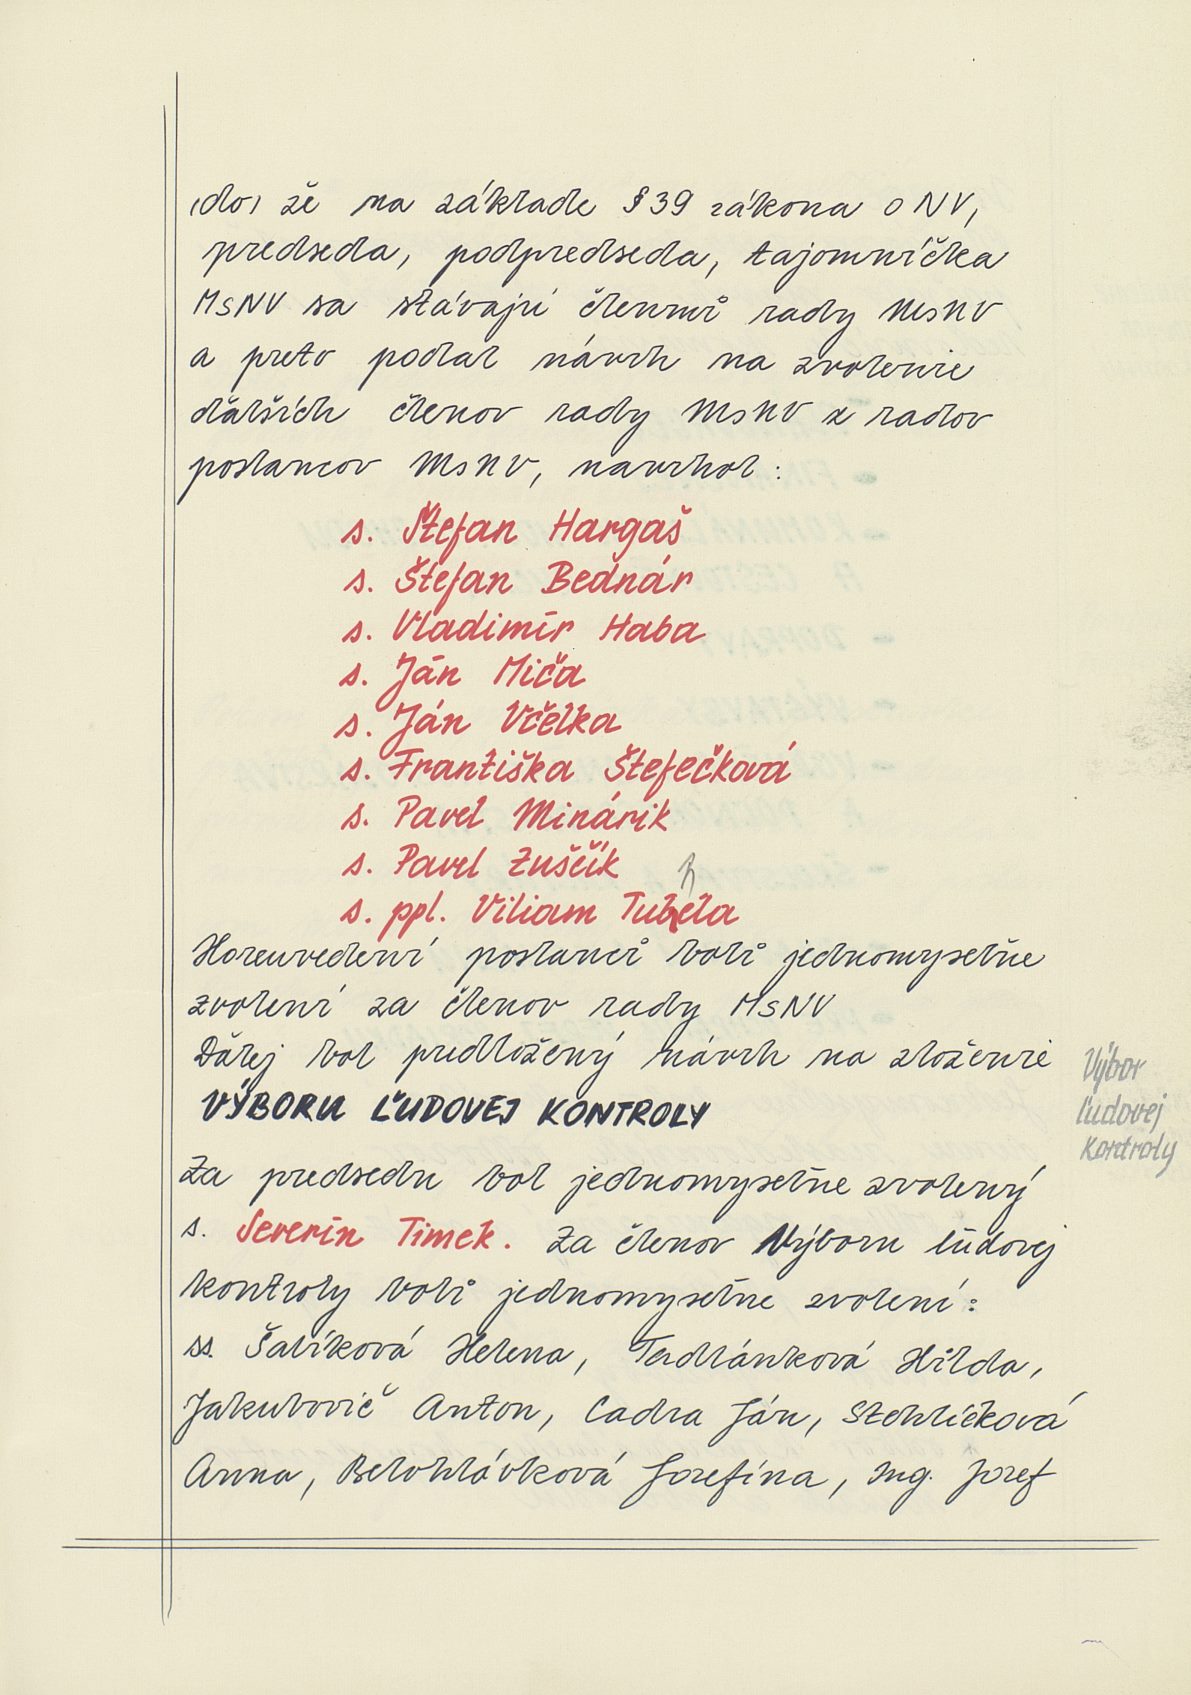 (do) že na základe § 39 zákona o NV,
predseda, podpredseda, tajomníčka
MsNV sa stávajú členmi rady MsNV
a preto podal návrh na zvolenie
ďalších členov rady MsNV z radov
poslancov MsNV, navrhol:
s. Štefan Hargaš
s. Štefan Bednár
s. Vladimír Haba
s. Ján Miča
s. Ján Včelka
s. Františka Štefečková
s. Pavel Minárik
s. Pavel Zuščík
s. ppl. Viliam
Horeuvedení poslanci boli jednomyseľne
zvolení za členov rady MsNV
Ďalej bol predložený návrh na zloženie
VÝBORU ĽUDOVEJ KONTROLY
Výbor
ľudovej
kontroly
Za predsedu bol jednomyseľne zvolený
s. Severín Timek. Za členov Výboru ľúdovej
kontroly boli jednomyseľne zvolení:
ss. Šalíková Helena, Tadlánková Hilda,
Jakubovič Anton, Cadra Ján, Stehlíčková
Anna, Belohlávková Jozefína, Ing. Jozef